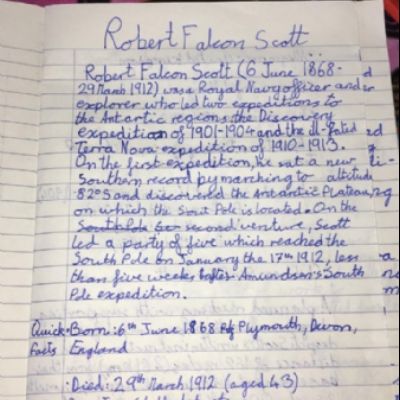 Robert Falcon Scott
Robert Falcon Scott (6 June 1868 -
29 March 1912) was a Royal Navy officer and
explorer who led two expeditions to
the Antarctic regions: the Discovery
expedition of 1901-1904 and the ill-fated
Terra Nova expedition of 1910-1913.
On the first expedition, he set a new
Southern record by marching to altitude
82°S and discovered the Antarctic Plateau,
on which the South Pole is located. On the
second venture, Scott
led a party of five which reached the
South Pole on January the 17th 1912, less
than five weeks after Amundsen's South
Pole expedition.
Quick Born: 6th June 1868 Plymouth, Devon,
facts England
Died: 29th March 1912 (aged 43)